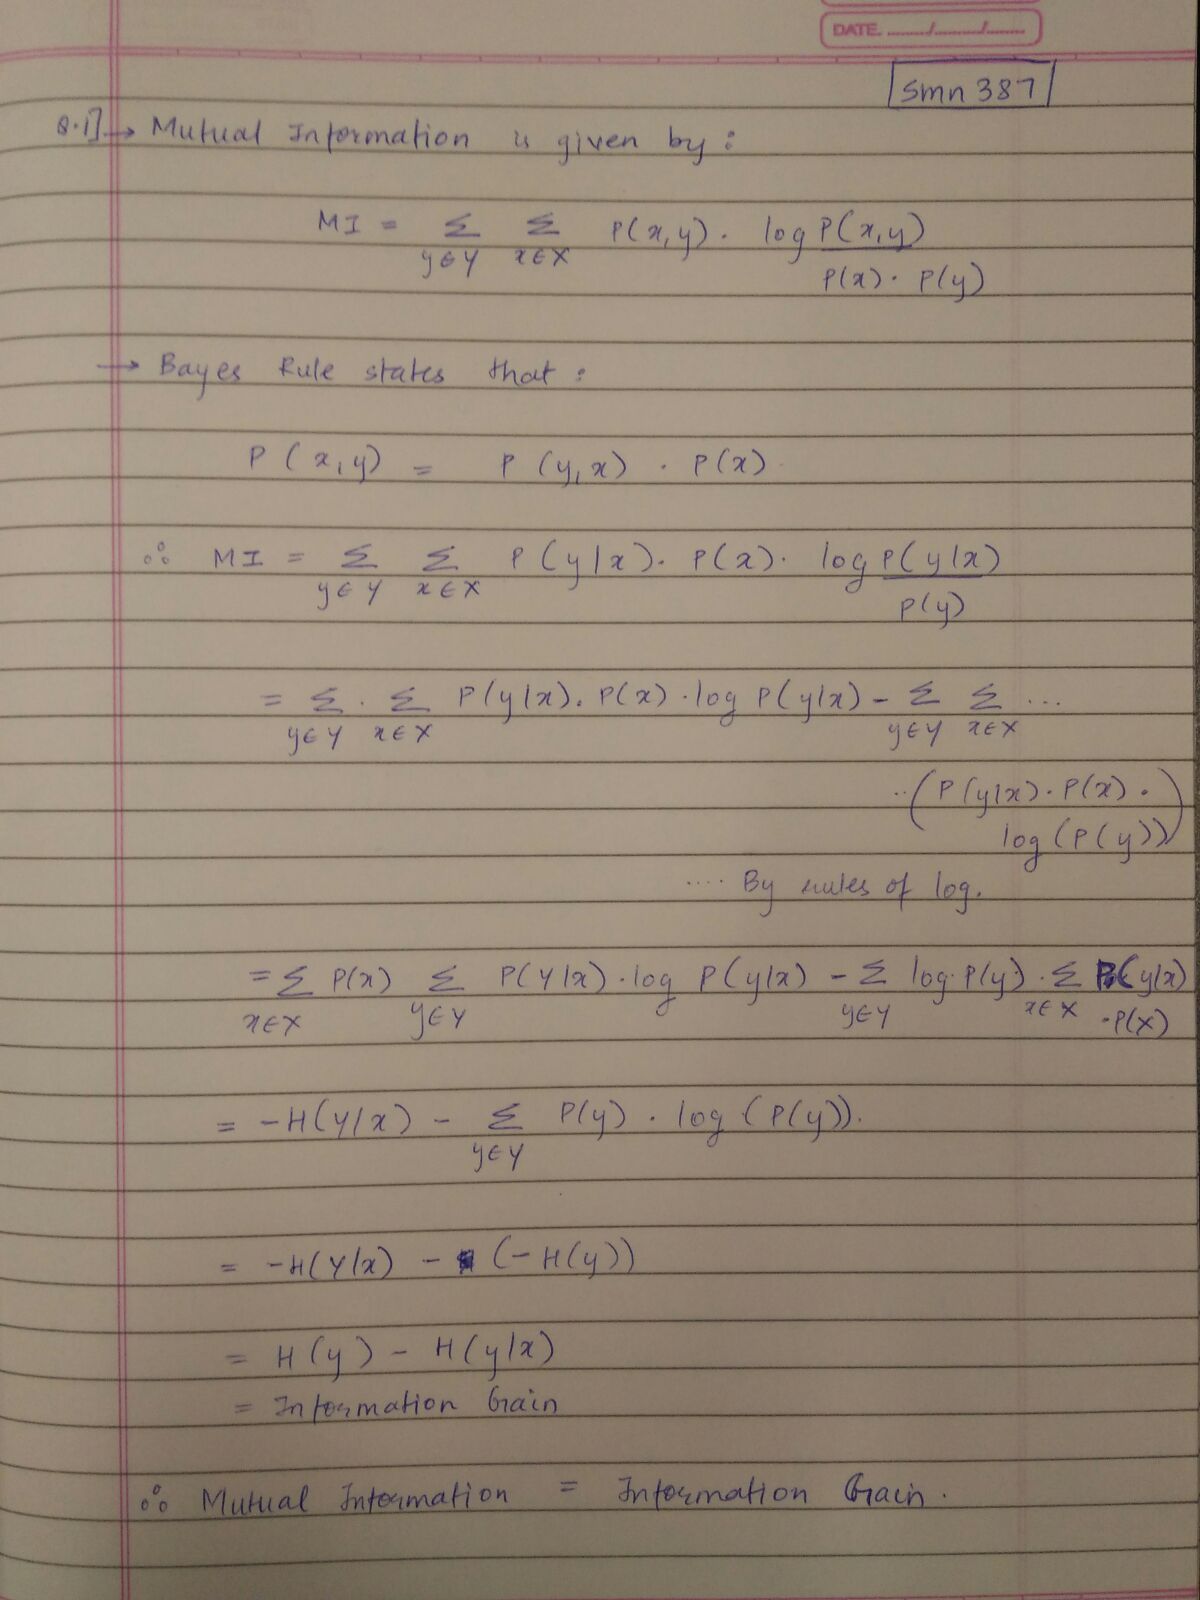 DATE ....../....../......
Smn 387
Q.1] → Mutual Information is given by :
MI = Σ y∈Y Σ x∈X P(x,y) · log P(x,y) / P(x) · P(y)
→ Bayes Rule states that :
P (x,y) = P (y,x) · P(x)
∴ MI = Σ y∈Y Σ x∈X P (y|x) · P(x) · log P(y|x) / P(y)
= Σ y∈Y · Σ x∈X P(y|x) . P(x) · log P(y|x) - Σ y∈Y Σ x∈X ...
..( P(y|x) · P(x) ·
log (P(y)) )
.... By rules of log.
= Σ x∈X P(x) Σ y∈Y P(Y|x) · log P(y|x) - Σ y∈Y log P(y) · Σ x∈X P(y|x)
· P(x)
= -H(Y|x) - Σ y∈Y P(y) · log (P(y)).
= -H(Y|x) - (-H(y))
= H(y) - H(y|x)
= Information Gain
∴ Mutual Information = Information Gain.